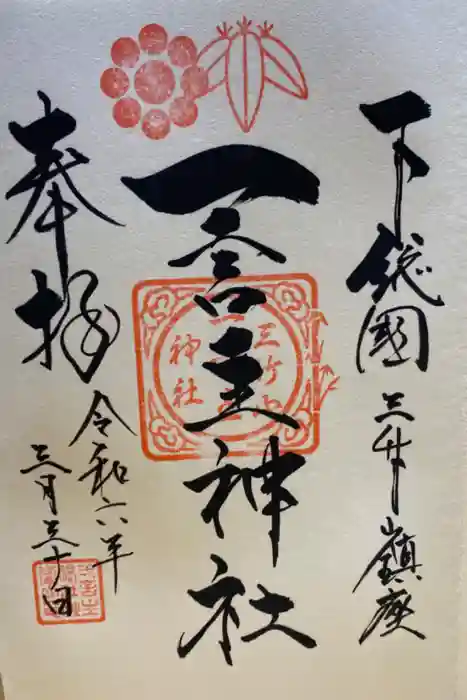 下総國三竹山鎮座
一言主神社
奉拝
令和六年
三月三十日
神社